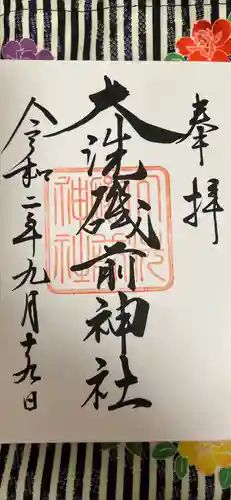 奉拝
大洗磯前神社
令和二年九月十九日